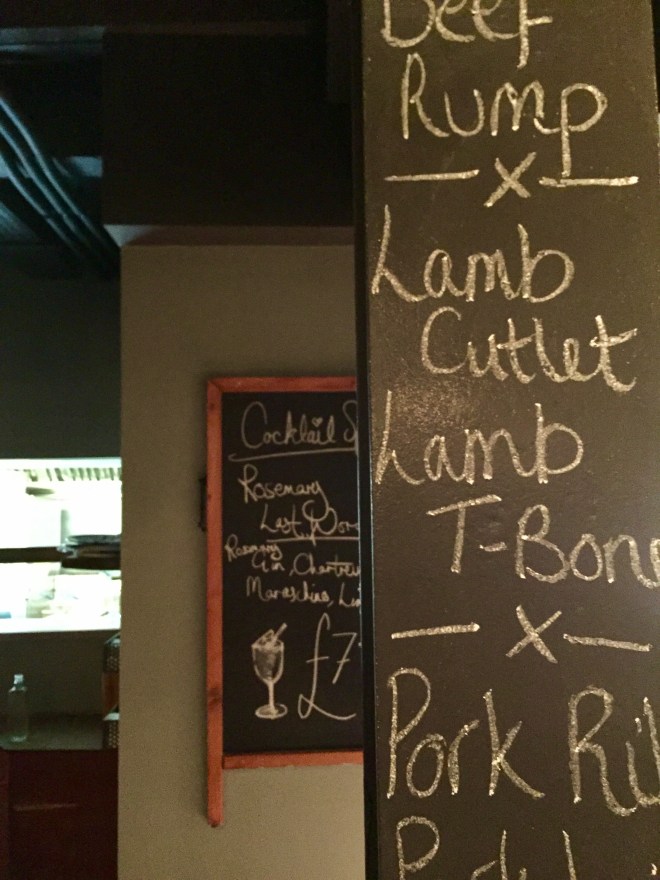 Beef
Rump
x
Lamb
Cutlet
Lamb
T-Bon
x
Pork Ri
Cocktail S
Rosemary
Last Wor
Rosemary
Gin, Chartre
Maraschino, Li
£7